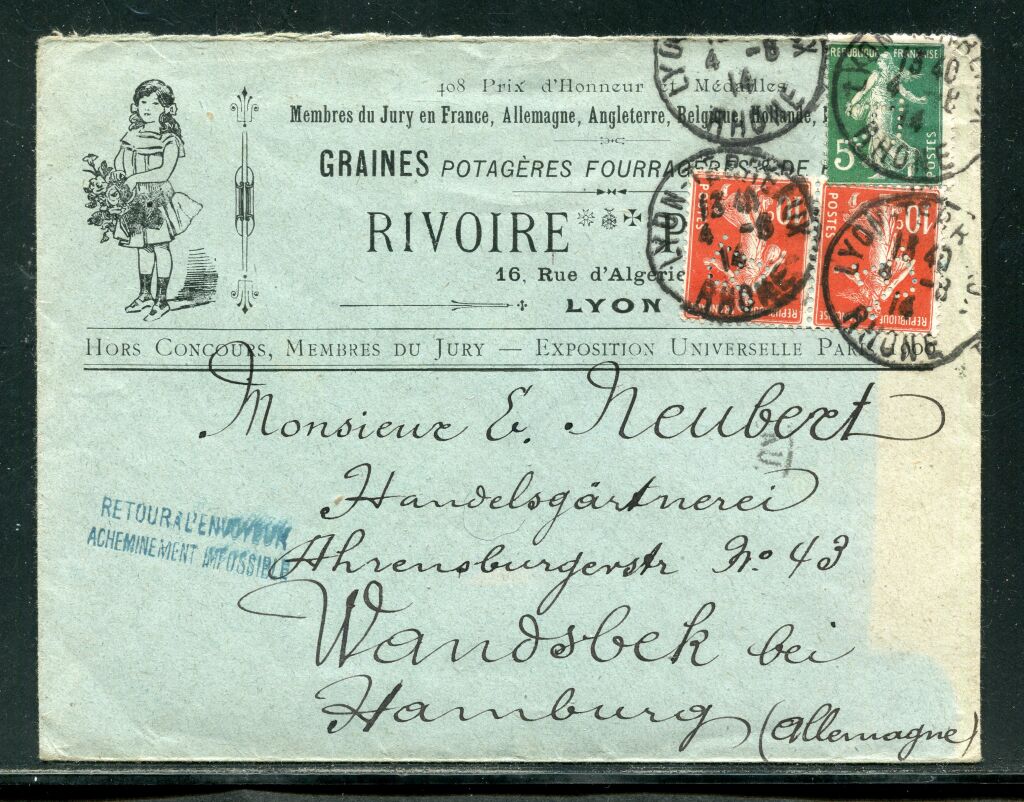 408 Prix d'Honneur et Médailles
Membres du Jury en France, Allemagne, Angleterre, Belgique, Hollande,
GRAINES POTAGÈRES FOURRAGÈRES DE
RIVOIRE
16, Rue d'Algérie
LYON
HORS CONCOURS, MEMBRES DU JURY — EXPOSITION UNIVERSELLE PARIS
LYON
4 -8
14
RHONE
RÉPUBLIQUE FRANÇAISE
5
POSTES
13 40
4 -8
14
RHONE
LYON-TERREAUX
13 40
4 -8
14
RHONE
POSTES
RÉPUBLIQUE
10c
POSTES
RÉPUBLIQUE
LYON
13 40
-8
14
RHONE
Monsieur E. Neubert
Handelsgärtnerei
Ahrensburgerstr No. 43
Wandsbek bei
Hamburg (Allemagne)
RETOUR A L'ENVOYEUR
ACHEMINEMENT IMPOSSIBLE